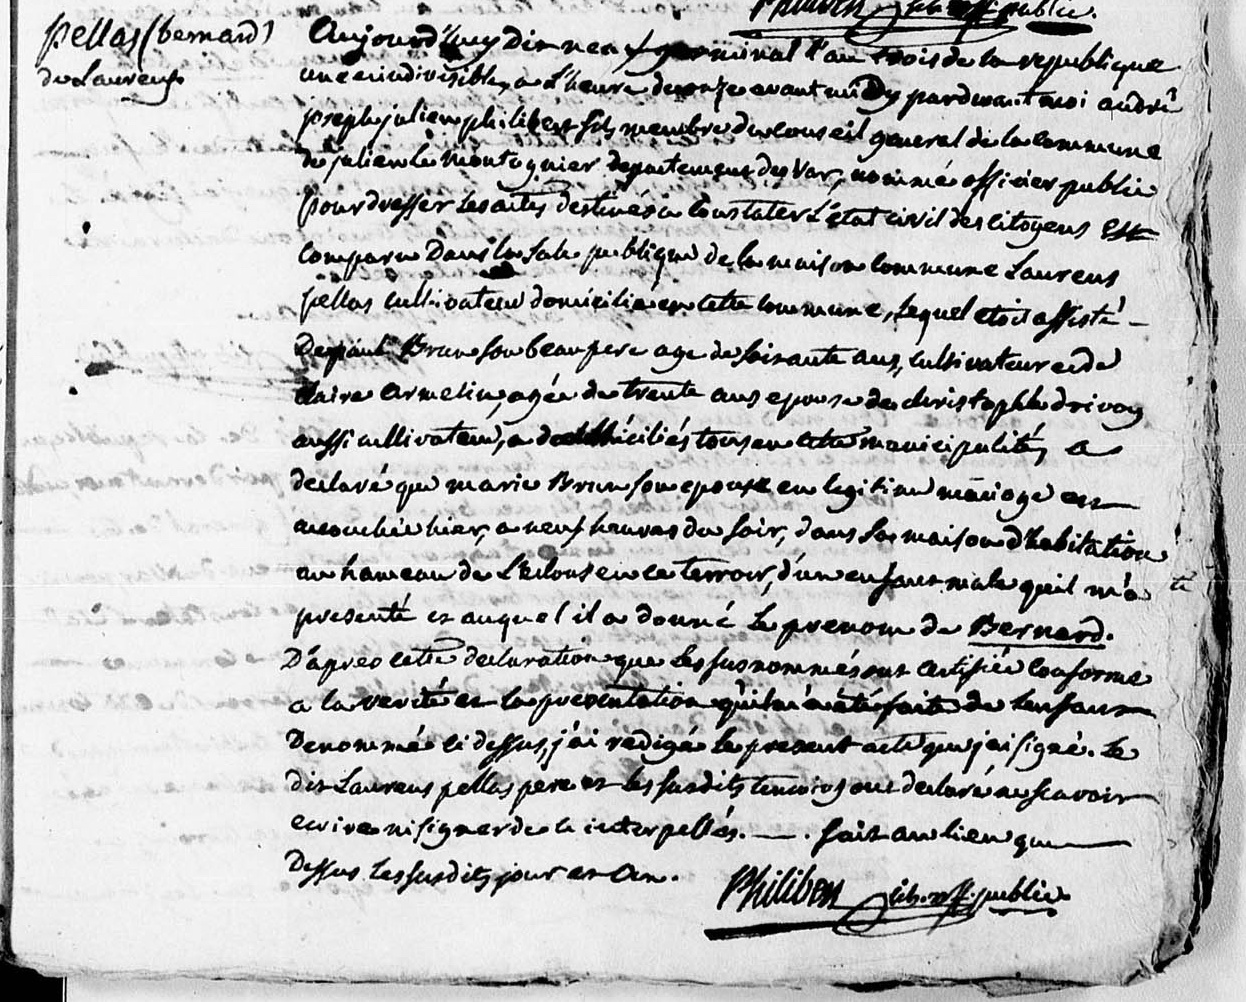 Philibert fils off. public.
pellas (bernard)
de Laurens
Aujourd'huy dix neuf germinal l'an trois de la republique
une et indivisible, a L'heure de onze avant midy pardevant moi andré
joseph julien philibert fils membre du conseil general de la commune
de julien le Montagnier departement du Var, nommé officier public
pour dresser les actes destinés a constater L'état civil des citoyens est
comparu Dans la Sale publique de la maison commune Laurens
pellas cultivateur domicilié en cette commune, lequel etoit assisté
De paul Brun son beau pere age de soixante ans, cultivateur et de
Claire armelin, agée de trente ans epouse de christophe
aussi cultivateur, domiciliés tous en cette municipalité, a
declaré que marie Brun son epouse en legitime mariage est
accouchée hier, a neuf heures du soir, dans sa maison d'habitation
au hameau de L'eclous en ce terroir, d'un enfant male qu'il m'a
presenté et auquel il a donné Le prenom de Bernard.
D'apres cette declaration que les susnommés ont certifiée conforme
a la verité et la presentation qui m'a été faite de l'enfant
Denommé ci dessus, j'ai redigé le present acte que j'ai signé. Le
dit Laurens pellas pere et les susdits temoins ont declaré ne scavoir
ecrire ni signer de ce interpellés. fait au lieu que
Dessus les susdits jour et an.
Philibert fils. off. public